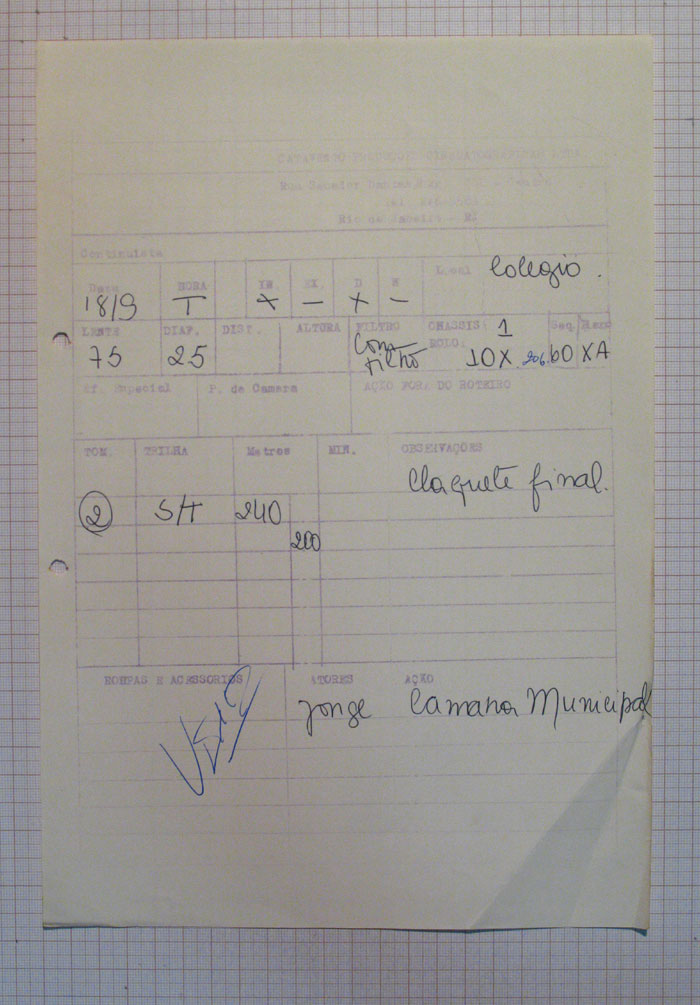 CATAVENTO PRODUÇÕES CINEMATOGRÁFICAS LTDA
Rua Senador Dantas
Rio de Janeiro - RJ
Continuista
Data HORA IN. EX. D N Local Colegio.
18/9 T X — X —
LENTE DIAF. DIST. ALTURA FILTRO CHASSIS: 1 Seq.
75 25 Com filtro ROLO: 10X 206 60 XA
Ef. Especial P. de Camera AÇÃO FOR. DO ROTEIRO
TOM. TRILHA Metros MIN. OBSERVAÇÕES
Claquete final.
2 S/T 240
200
ROUPAS E ACESSORIOS ATORES AÇÃO
Jorge Camara Municipal